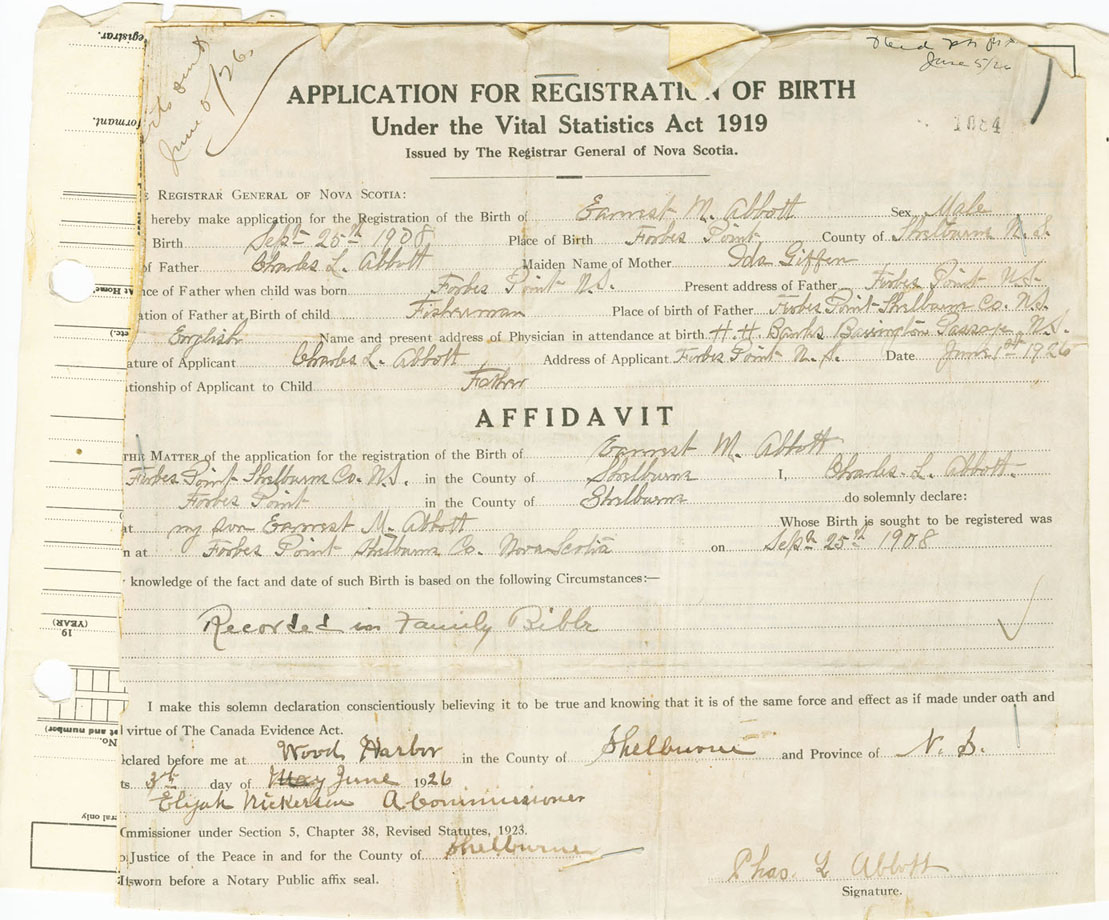 June 5/26
June 5/26
APPLICATION FOR REGISTRATI N OF BIRTH
Under the Vital Statistics Act 1919
1884
Issued by The Registrar General of Nova Scotia.
REGISTRAR GENERAL OF NOVA SCOTIA:
hereby make application for the Registration of the Birth of Earnest M. Abbott Sex Male
Birth Sept 25th 1908 Place of Birth Forbes Point County of Shelburne N.S.
of Father Charles L. Abbott Maiden Name of Mother Ida Giffen
nce of Father when child was born Forbes Point N.S. Present address of Father Forbes Point N.S.
ation of Father at Birth of child Fisherman Place of birth of Father Forbes Point Shelburne Co. N.S.
English Name and present address of Physician in attendance at birth H. H. Banks Barrington Passage, N.S.
ature of Applicant Charles L. Abbott Address of Applicant Forbes Point N.S. Date June 1st 1926
tionship of Applicant to Child Father
AFFIDAVIT
THE MATTER of the application for the registration of the Birth of Earnest M. Abbott
Forbes Point Shelburne Co. N.S. in the County of Shelburne I, Charles L. Abbott
Forbes Point in the County of Shelburne do solemnly declare:
at my son Earnest M. Abbott Whose Birth is sought to be registered was
n at Forbes Point Shelburne Co. Nova Scotia on Sept 25th 1908
knowledge of the fact and date of such Birth is based on the following Circumstances:—
Recorded in Family Bible
I make this solemn declaration conscientiously believing it to be true and knowing that it is of the same force and effect as if made under oath and
virtue of The Canada Evidence Act.
eclared before me at Wood Harbor in the County of Shelburne and Province of N. S.
s 3rd day of May June 1926
Elijah Nickerson A Commissioner
ommissioner under Section 5, Chapter 38, Revised Statutes, 1923.
Justice of the Peace in and for the County of Shelburne
If sworn before a Notary Public affix seal.
Chas. L Abbott
Signature.
registrar.
formant.
At Home,
etc.)
(YEAR)
19
et and number)
No.
eral only